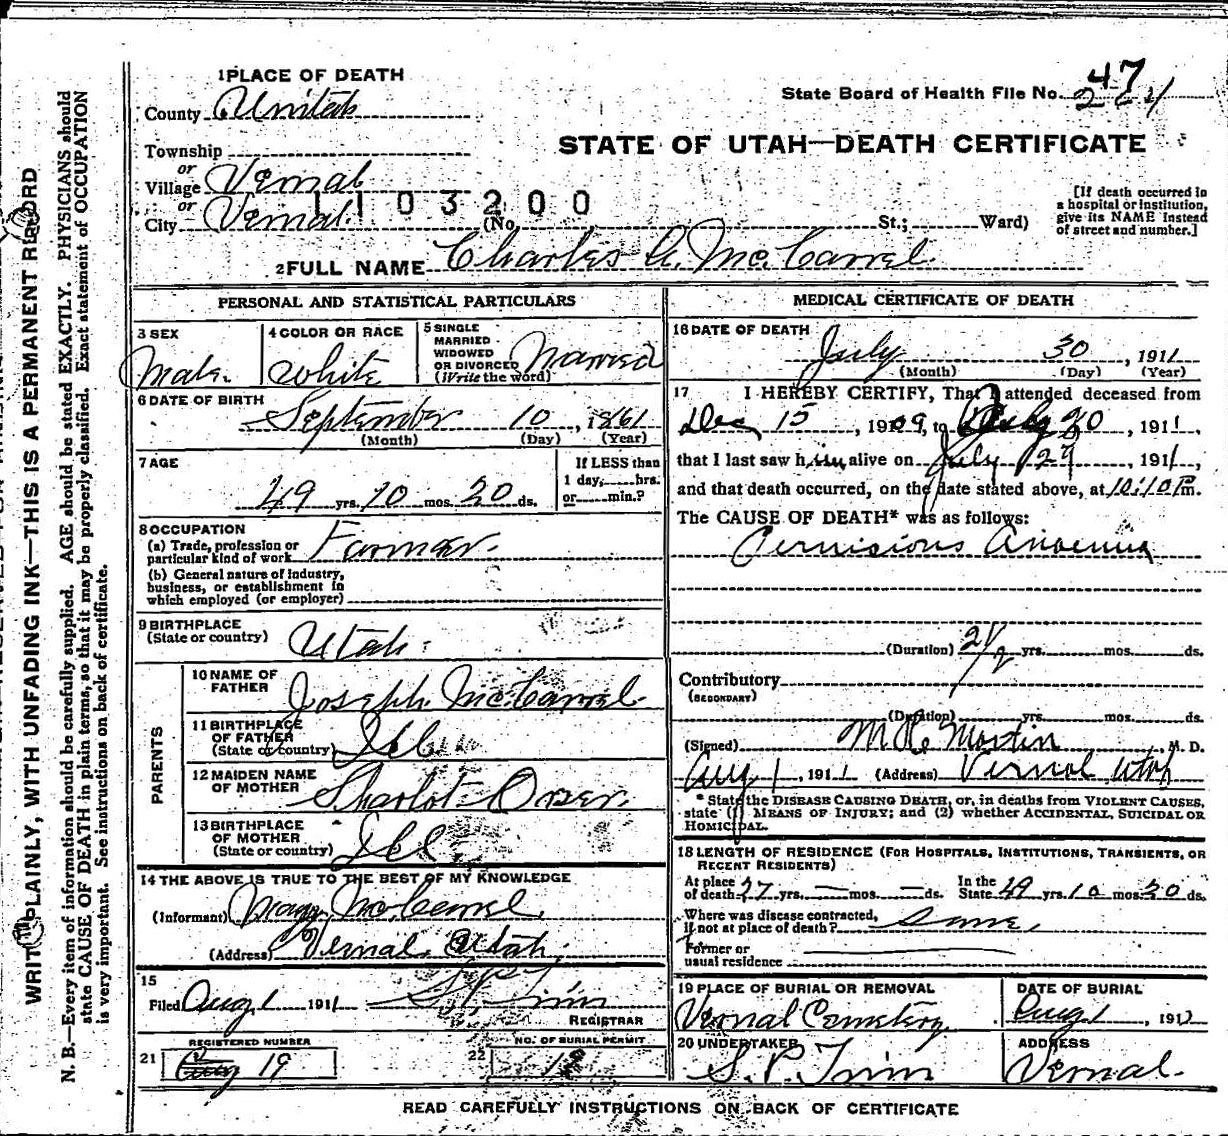 1 PLACE OF DEATH
County Unitah
State Board of Health File No. 247
STATE OF UTAH—DEATH CERTIFICATE
Township
or
Village Vernal
or
City Vernal. (No. St.; Ward)
1103200
[If death occurred in
a hospital or institution,
give its NAME instead
of street and number.]
2 FULL NAME Charles A. McCarrel
PERSONAL AND STATISTICAL PARTICULARS
3 SEX
Male.
4 COLOR OR RACE
White
5 SINGLE
MARRIED
WIDOWED
OR DIVORCED
(Write the word)
Married
6 DATE OF BIRTH
September 10, 1861
(Month) (Day) (Year)
7 AGE
49 yrs. 10 mos. 20 ds.
If LESS than
1 day, hrs.
or min.?
8 OCCUPATION
(a) Trade, profession or
particular kind of work Farmer.
(b) General nature of industry,
business, or establishment in
which employed (or employer)
9 BIRTHPLACE
(State or country) Utah.
PARENTS
10 NAME OF
FATHER Joseph McCarrel
11 BIRTHPLACE
OF FATHER
(State or country) Ill
12 MAIDEN NAME
OF MOTHER Sharlot Orser.
13 BIRTHPLACE
OF MOTHER
(State or country) Ill.
14 THE ABOVE IS TRUE TO THE BEST OF MY KNOWLEDGE
(Informant) McCarrel.
(Address) Vernal, Utah.
15
Filed Aug 1 1911
REGISTRAR
REGISTERED NUMBER
21 19
NO. OF BURIAL PERMIT
22
MEDICAL CERTIFICATE OF DEATH
16 DATE OF DEATH
July 30, 1911
(Month) (Day) (Year)
17 I HEREBY CERTIFY, That I attended deceased from
Dec 15, 1909, to July 30, 1911,
that I last saw him alive on July 29, 1911,
and that death occurred, on the date stated above, at 10:10 P.m.
The CAUSE OF DEATH* was as follows:
Pernisious Anaemia
(Duration) 2 1/2 yrs. mos. ds.
Contributory
(SECONDARY)
(Duration) yrs. mos. ds.
(Signed) Martin, M. D.
Aug 1, 1911 (Address) Vernal Utah
* State the DISEASE CAUSING DEATH, or, in deaths from VIOLENT CAUSES,
state (1) MEANS OF INJURY; and (2) whether ACCIDENTAL, SUICIDAL OR
HOMICIDAL.
18 LENGTH OF RESIDENCE (FOR HOSPITALS, INSTITUTIONS, TRANSIENTS, OR
RECENT RESIDENTS)
At place
of death yrs. — mos. — ds. In the
State 49 yrs. 10 mos. 20 ds.
Where was disease contracted,
if not at place of death? Same,
Former or
usual residence
19 PLACE OF BURIAL OR REMOVAL
Vernal Cemetery.
DATE OF BURIAL
Aug 1, 191
20 UNDERTAKER
S. P.
ADDRESS
Vernal.
READ CAREFULLY INSTRUCTIONS ON BACK OF CERTIFICATE
WRITE PLAINLY, WITH UNFADING INK—THIS IS A PERMANENT RECORD
N. B.—Every item of information should be carefully supplied. AGE should be stated EXACTLY. PHYSICIANS should
state CAUSE OF DEATH in plain terms, so that it may be properly classified. Exact statement of OCCUPATION
is very important. See instructions on back of certificate.